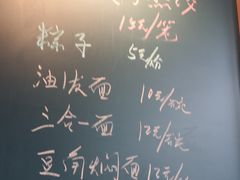 15元/笼
粽子 5元/份
油泼面 10元/碗
三合一面 12元/碗
豆角焖面 12元/